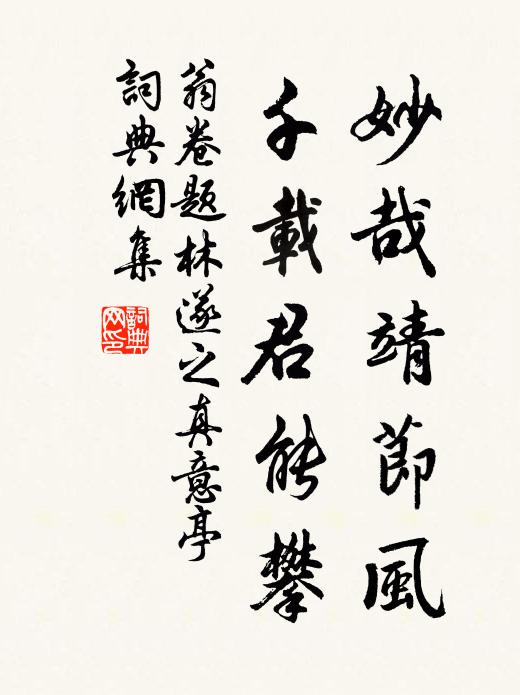 妙哉靖節風
千載君能攀
翁卷題林遂之真意亭
詞典網集
詞典网印